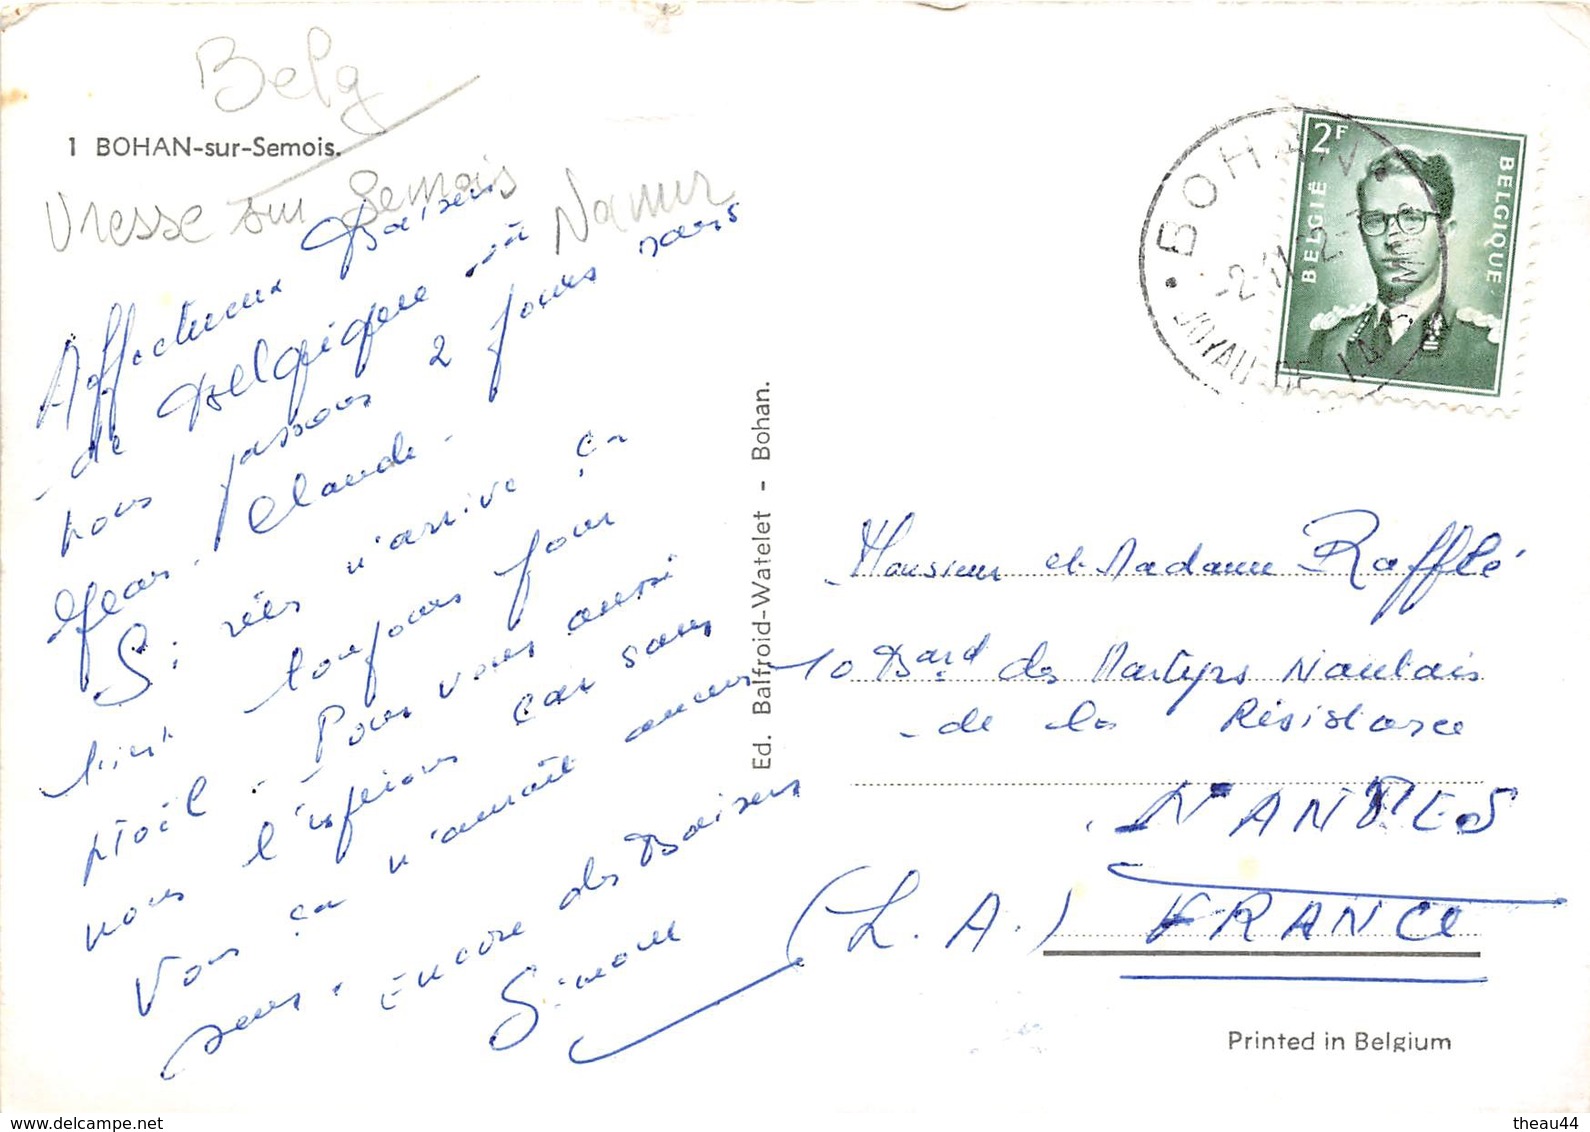 Belg
1 BOHAN-sur-Semois.
Vresse sur Semois
Namur
Affectueux Baisers
de Belgique où
nous passons 2 jours sans
Claude.
Si rien n'arrive ça
tient toujours pour
Noël. Pour vous aussi
nous l'espérons car sans
vous ça n'aurait aucun
sens. Encore des Baisers
Simone
Ed. Balfroid-Watelet - Bohan.
2F
BELGIË
BELGIQUE
BOHAN
JOYAU DE LA SEMOIS
Monsieur et Madame Rafflé
10 Bard des Martyrs Nantais
de la Résistance
NANTES
(L.A.) FRANCE
Printed in Belgium
theau44